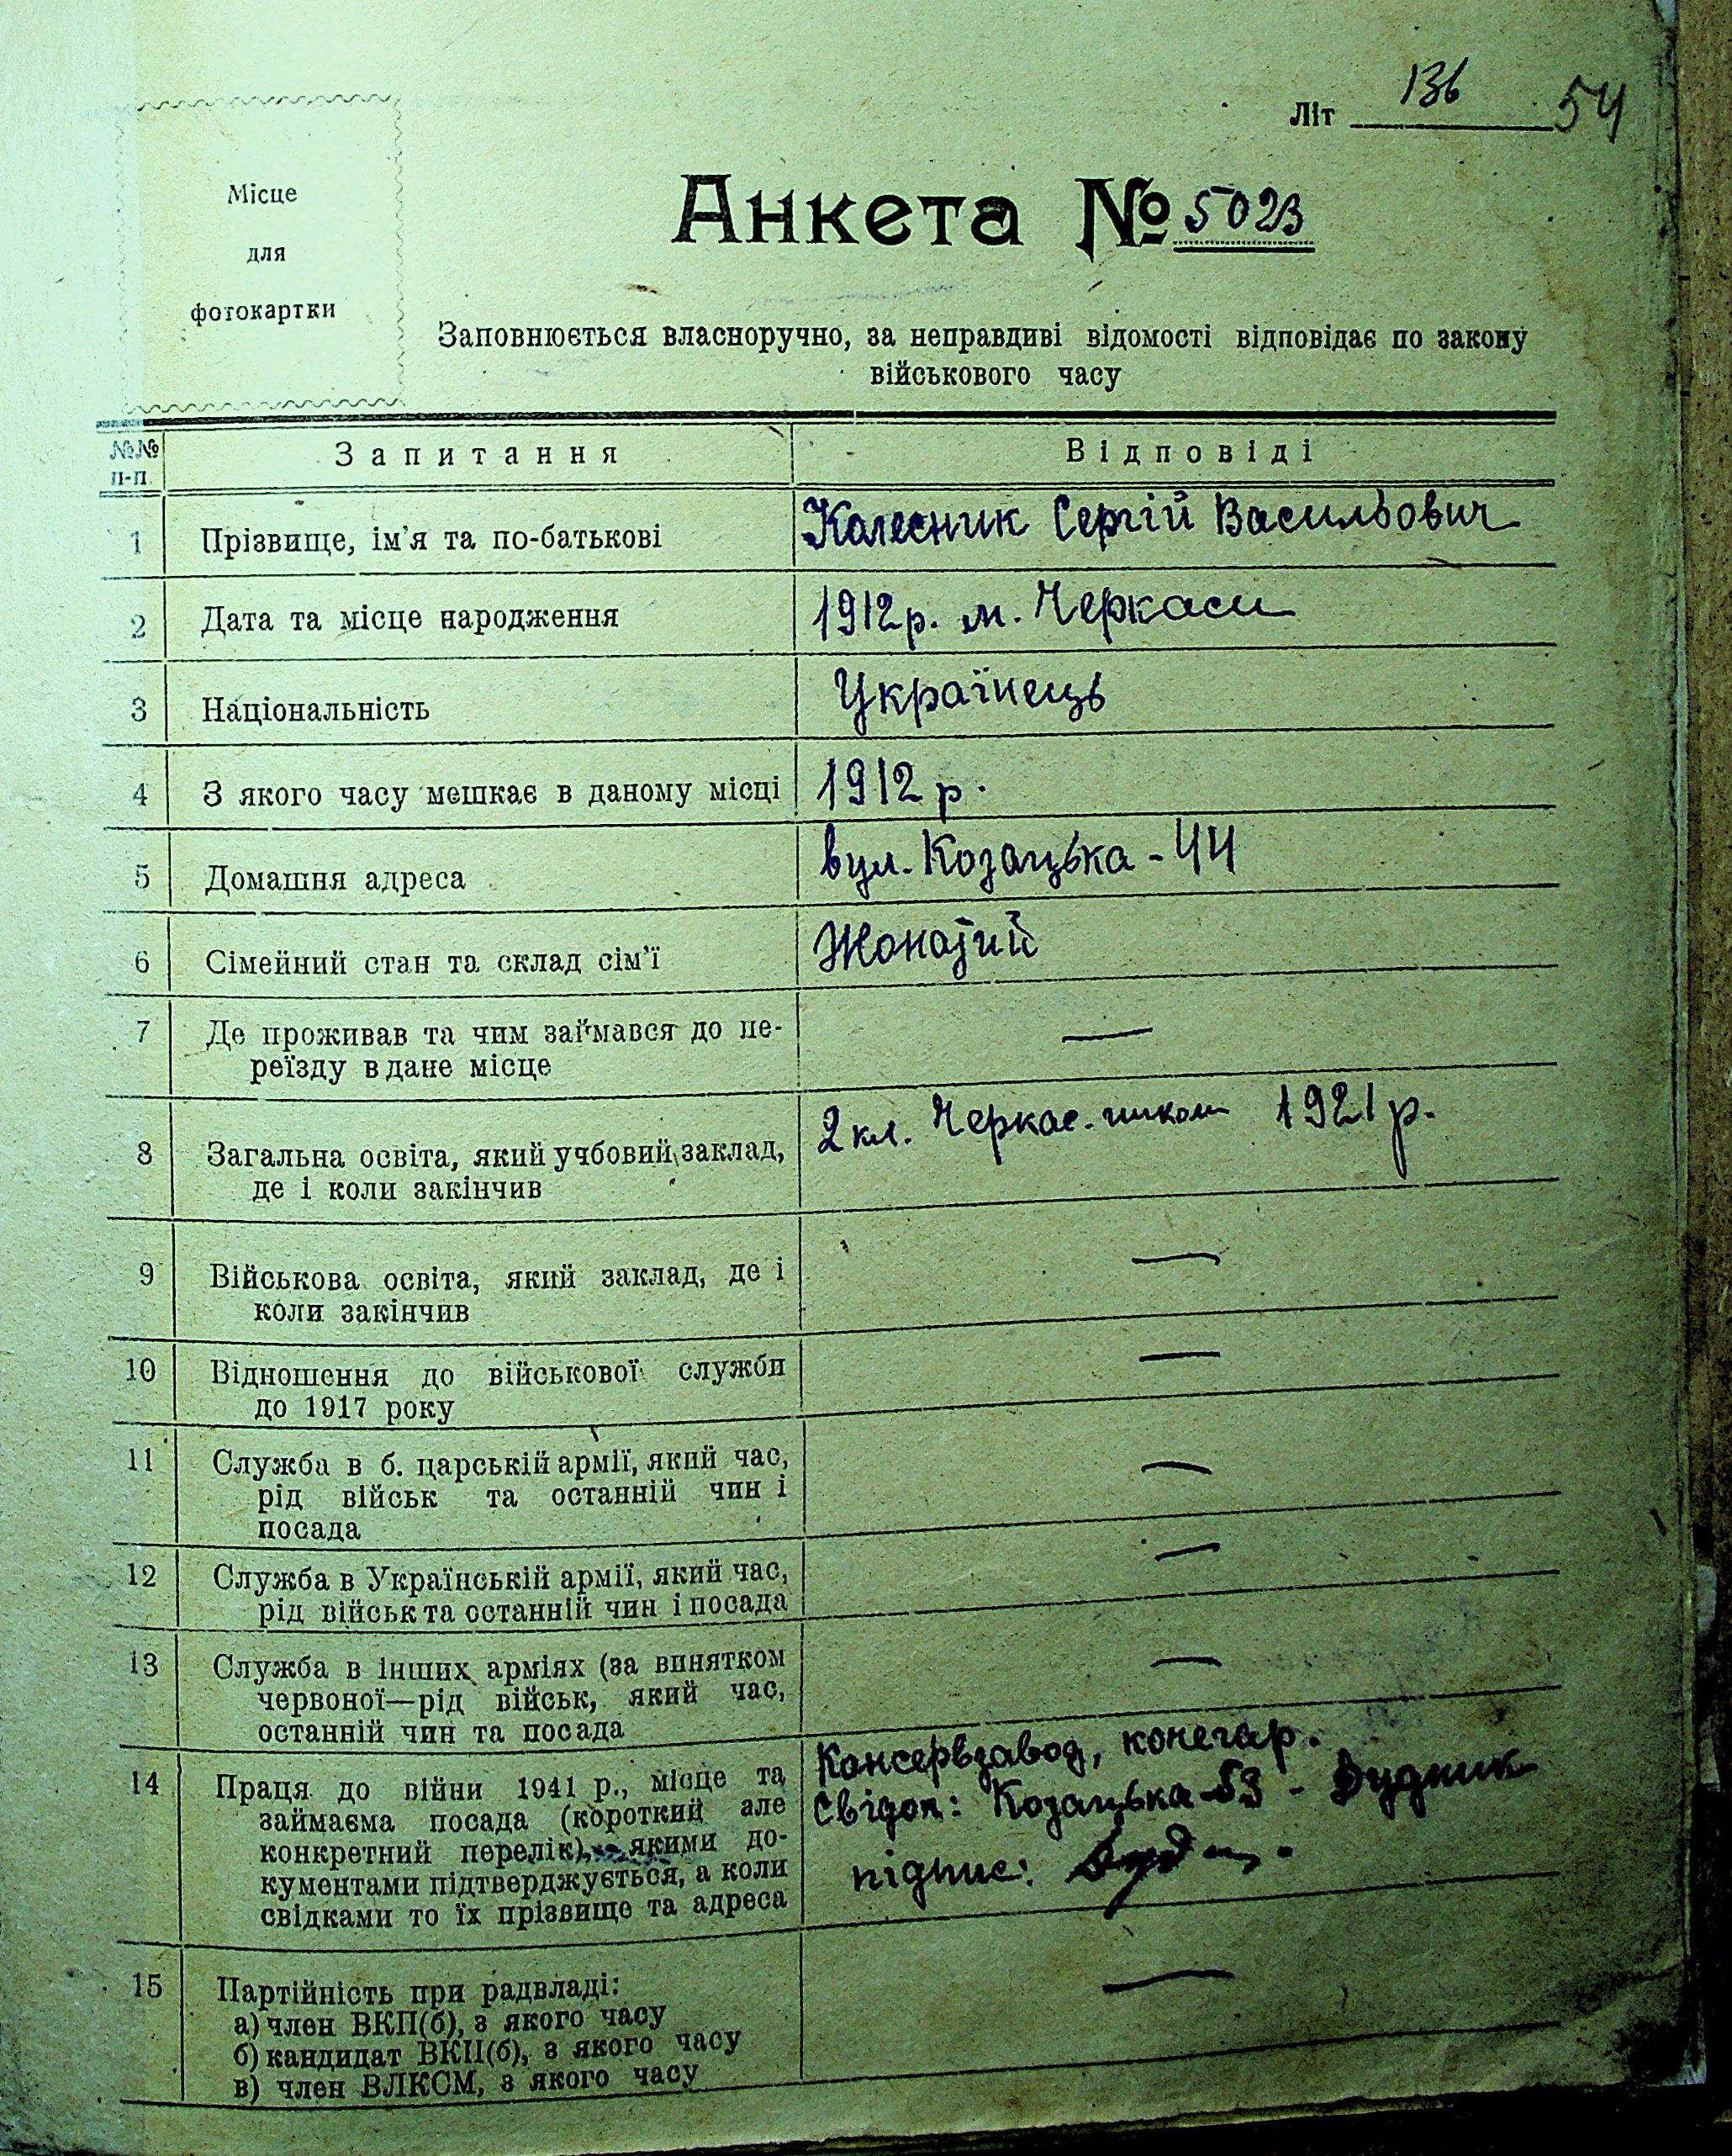 Літ 136 54
Місце
для
фотокартки
Анкета № 5023
Заповнюється власноручно, за неправдиві відомості відповідає по закону
військового часу
№№ п-п. Запитання Відповіді
1 Прізвище, ім'я та по-батькові Колесник Сергій Васильович
2 Дата та місце народження 1912 р. м. Черкаси
3 Національність Українець
4 З якого часу мешкає в даному місці 1912 р.
5 Домашня адреса вул. Козацька - 44
6 Сімейний стан та склад сім'ї Жонатий
7 Де проживав та чим займався до пе-
реїзду в дане місце —
8 Загальна освіта, який учбовий заклад, 2 кл. Черкас. школи 1921 р.
де і коли закінчив
9 Військова освіта, який заклад, де і
коли закінчив —
10 Відношення до військової служби
до 1917 року —
11 Служба в б. царській армії, який час,
рід військ та останній чин і
посада —
12 Служба в Українській армії, який час,
рід військ та останній чин і посада —
13 Служба в інших арміях (за винятком
червоної—рід військ, який час,
останній чин та посада —
14 Праця до війни 1941 р., місце та Консервзавод, конегар.
займаєма посада (короткий але свідок: Козацька-53 - Дудник
конкретний перелік), якими до- підпис:
кументами підтверджується, а коли
свідками то їх прізвище та адреса
15 Партійність при радвладі: —
а) член ВКП(б), з якого часу
б) кандидат ВКП(б), з якого часу
в) член ВЛКСМ, з якого часу